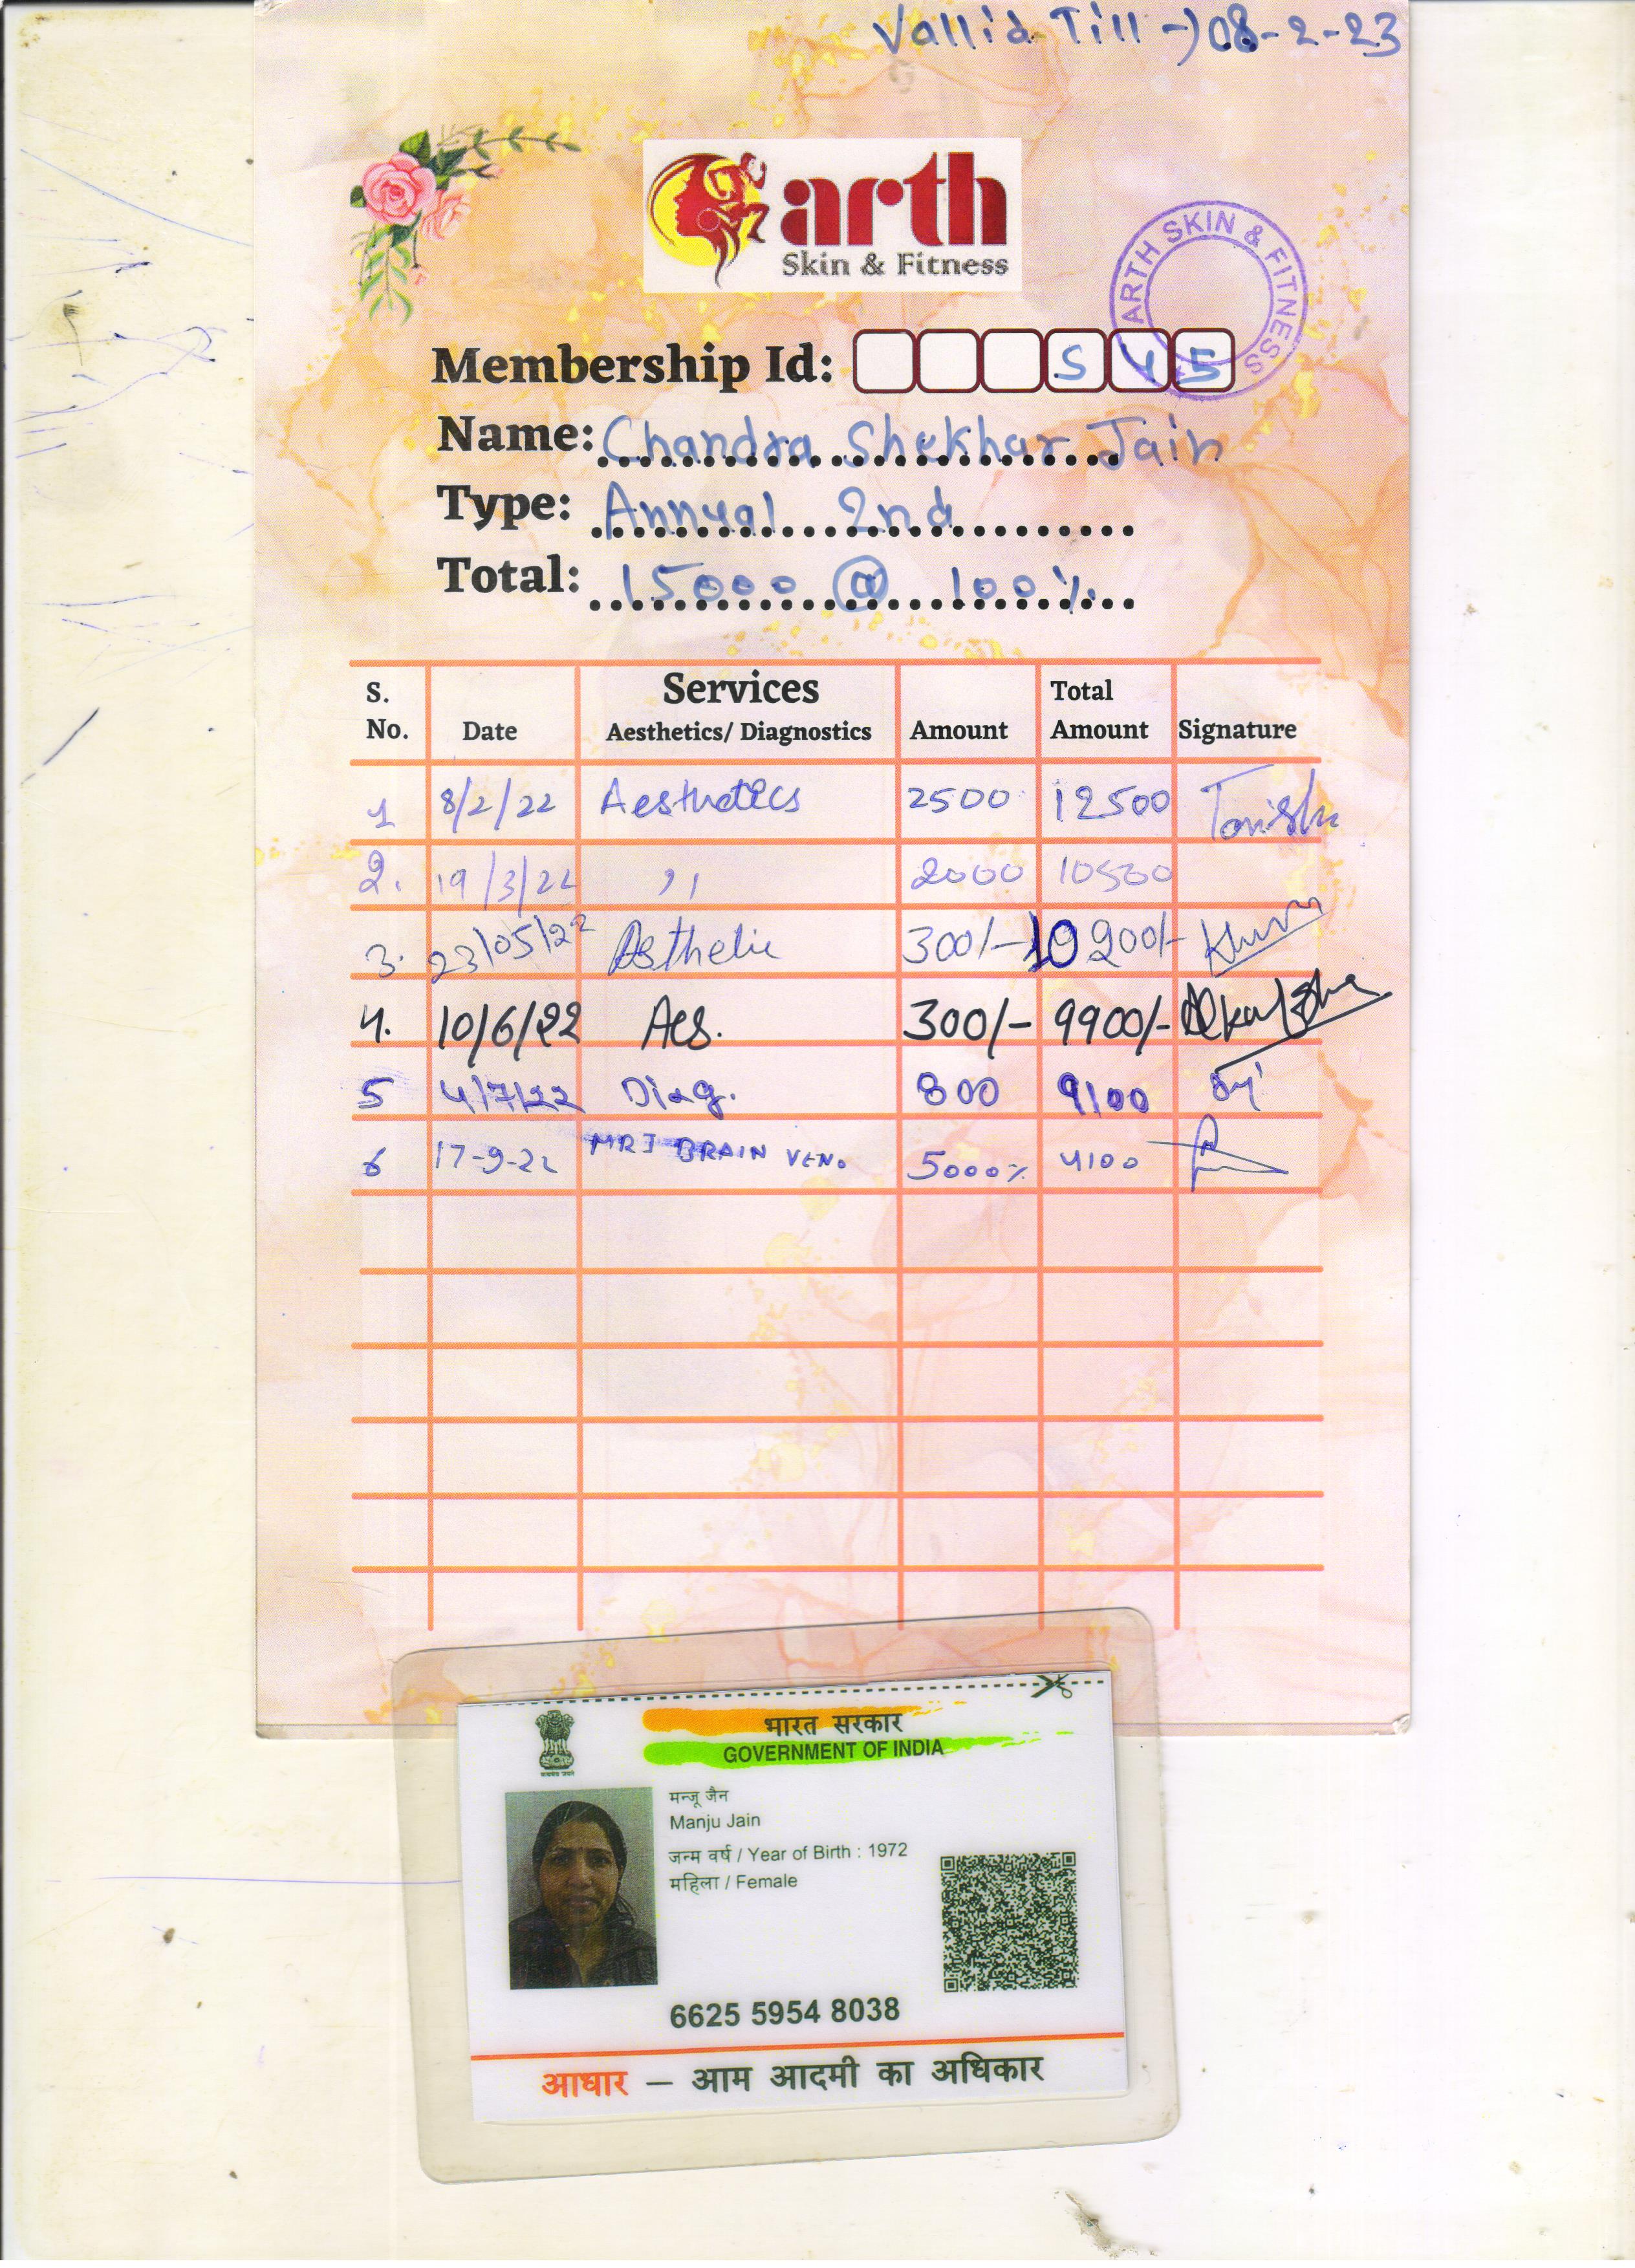 Vallid Till -) 08-2-23
arth
Skin & Fitness
ARTH SKIN & FITNESS
Membership Id: 545
Name: Chandra Shekhar Jain
Type: Annual 2nd
Total: 15000 @ 100%
S. No. Date Services Aesthetics/ Diagnostics Amount Total Amount Signature
1 8/2/22 Aesthetics 2500 12500 Tanisha
2. 19/3/22 ,, 2000 10500
3. 23/05/22 Asthetic 300/- 10200/-
4. 10/6/22 Aes. 300/- 9900/-
5 4/7/22 Diag. 800 9100
6 17-9-22 MRI BRAIN VEN. 5000% 4100
भारत सरकार
GOVERNMENT OF INDIA
मन्जू जैन
Manju Jain
जन्म वर्ष / Year of Birth : 1972
महिला / Female
6625 5954 8038
आधार – आम आदमी का अधिकार